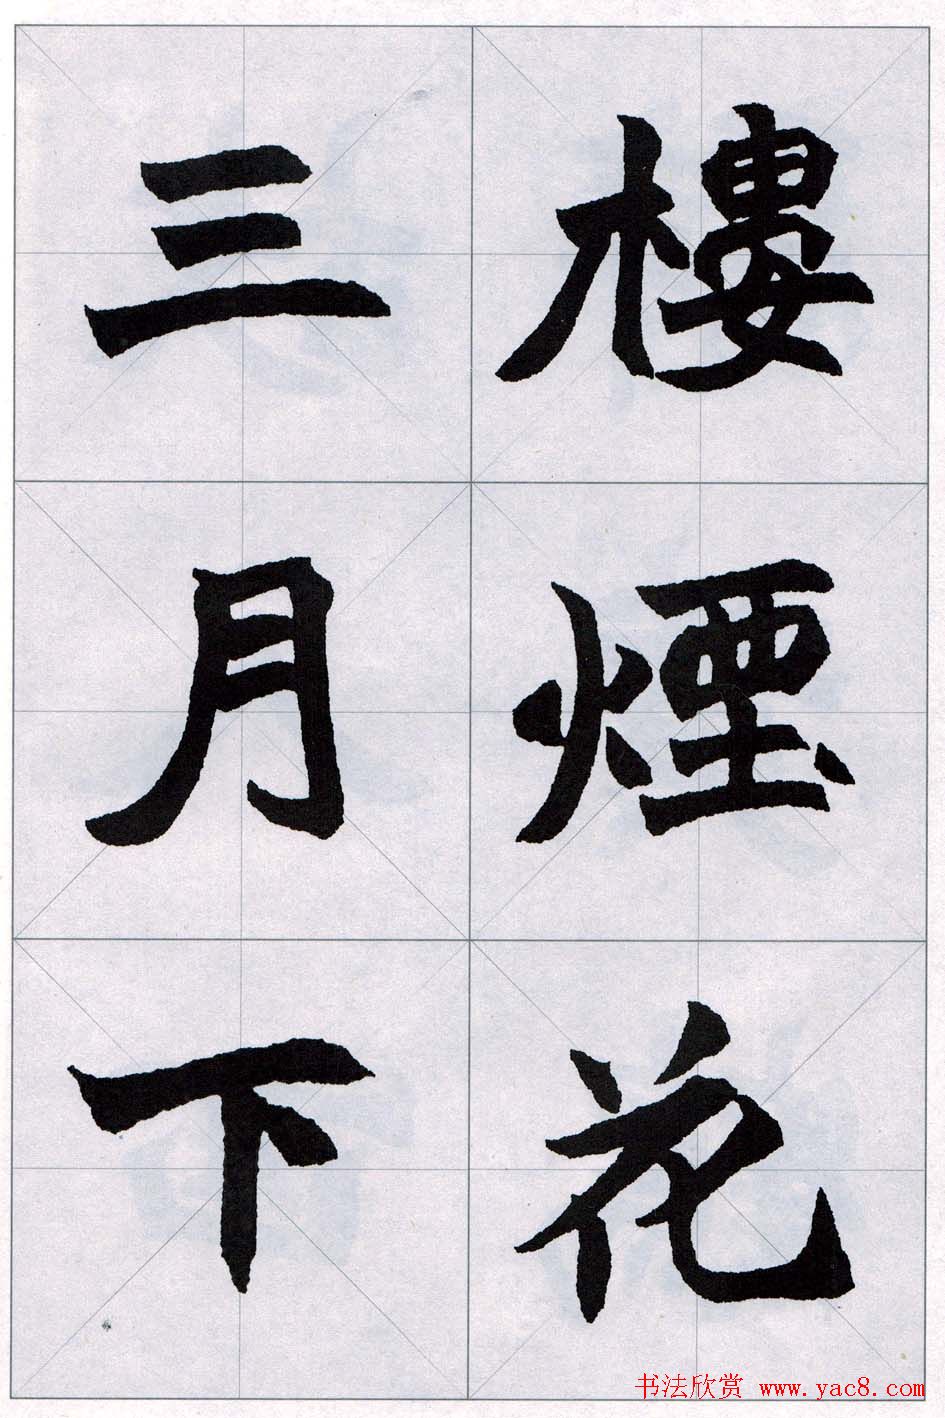 樓煙花
三月下
书法欣赏 www.yac8.com